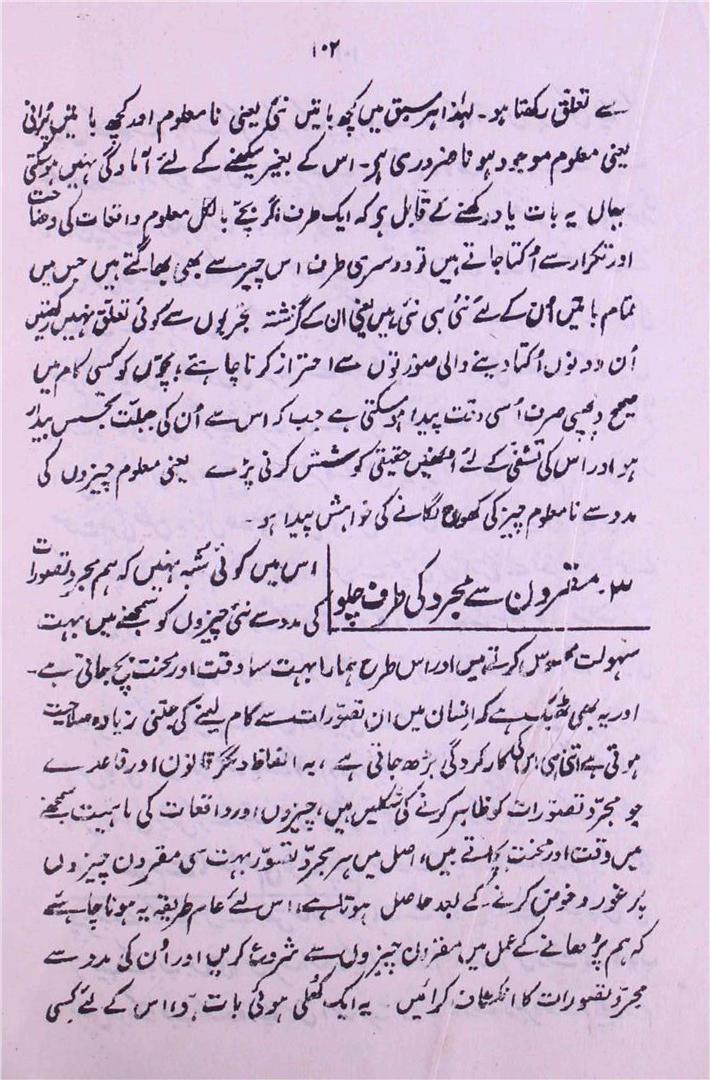 ۱۰۲
سے تعلق رکھتا ہو۔ لہٰذا ہر سبق میں کچھ باتیں نئی یعنی نا معلوم اور کچھ باتیں پرانی
یعنی معلوم موجود ہونا ضروری ہیں۔ اس کے بغیر سیکھنے کے لئے آمادگی نہیں ہو سکتی
یہاں یہ بات یاد رکھنے کے قابل ہو کہ ایک طرف اگر بچے بالکل معلوم واقعات کی وضاحت
اور تکرار سے اُکتا جاتے ہیں تو دوسری طرف اس چیز سے بھی بھاگتے ہیں جس میں
تمام باتیں اُن کے لئے نئی ہی نئی ہیں یعنی ان کے گزشتہ تجربوں سے کوئی تعلق نہیں رکھتیں
اُن دونوں اُکتا دینے والی صورتوں سے احتراز کرنا چاہئے، بچوں کو کسی کام میں
صحیح دلچسپی صرف اُسی وقت پیدا ہو سکتی ہے جب کہ اس سے اُن کی جبلّت تجسس بیدار
ہو اور اس کی تشفّی کے لئے انھیں حقیقی کوشش کرنی پڑے یعنی معلوم چیزوں کی
مدد سے نا معلوم چیز کی کھوج لگانے کی خواہش پیدا ہو۔
۳۔ مقرون سے مجرد کی طرف چلو
اس میں کوئی شبہ نہیں کہ ہم مجرد تصورات
کی مدد سے نئی چیزوں کو سمجھنے میں بہت
سہولت محسوس کرتے ہیں اور اس طرح ہمارا بہت سا وقت اور محنت بچ جاتی ہے۔
اور یہ بھی ٹھیک ہے کہ انسان میں ان تصوّرات سے کام لینے کی جتنی زیادہ صلاحیت
ہوتی ہے اتنی ہی اس کی کارکردگی بڑھ جاتی ہے، بہ الفاظ دیگر قانون اور قاعدے
جو مجرّد تصوّرات کو ظاہر کرنے کی شکلیں ہیں، چیزوں اور واقعات کی ماہیت سمجھنے
میں وقت اور محنت بچاتے ہیں، اصل میں ہر مجرد تصوّر بہت سی مقرون چیزوں
پر غور و خوض کرنے کے بعد حاصل ہوتا ہے، اس لئے عام طریقہ یہ ہونا چاہئے
کہ ہم پڑھانے کے عمل میں مقرون چیزوں سے شروع کریں اور اُن کی مدد سے
مجرّد تصورات کا انکشاف کرائیں۔ یہ ایک کھلی ہوئی بات ہو، اس کے لئے کسی